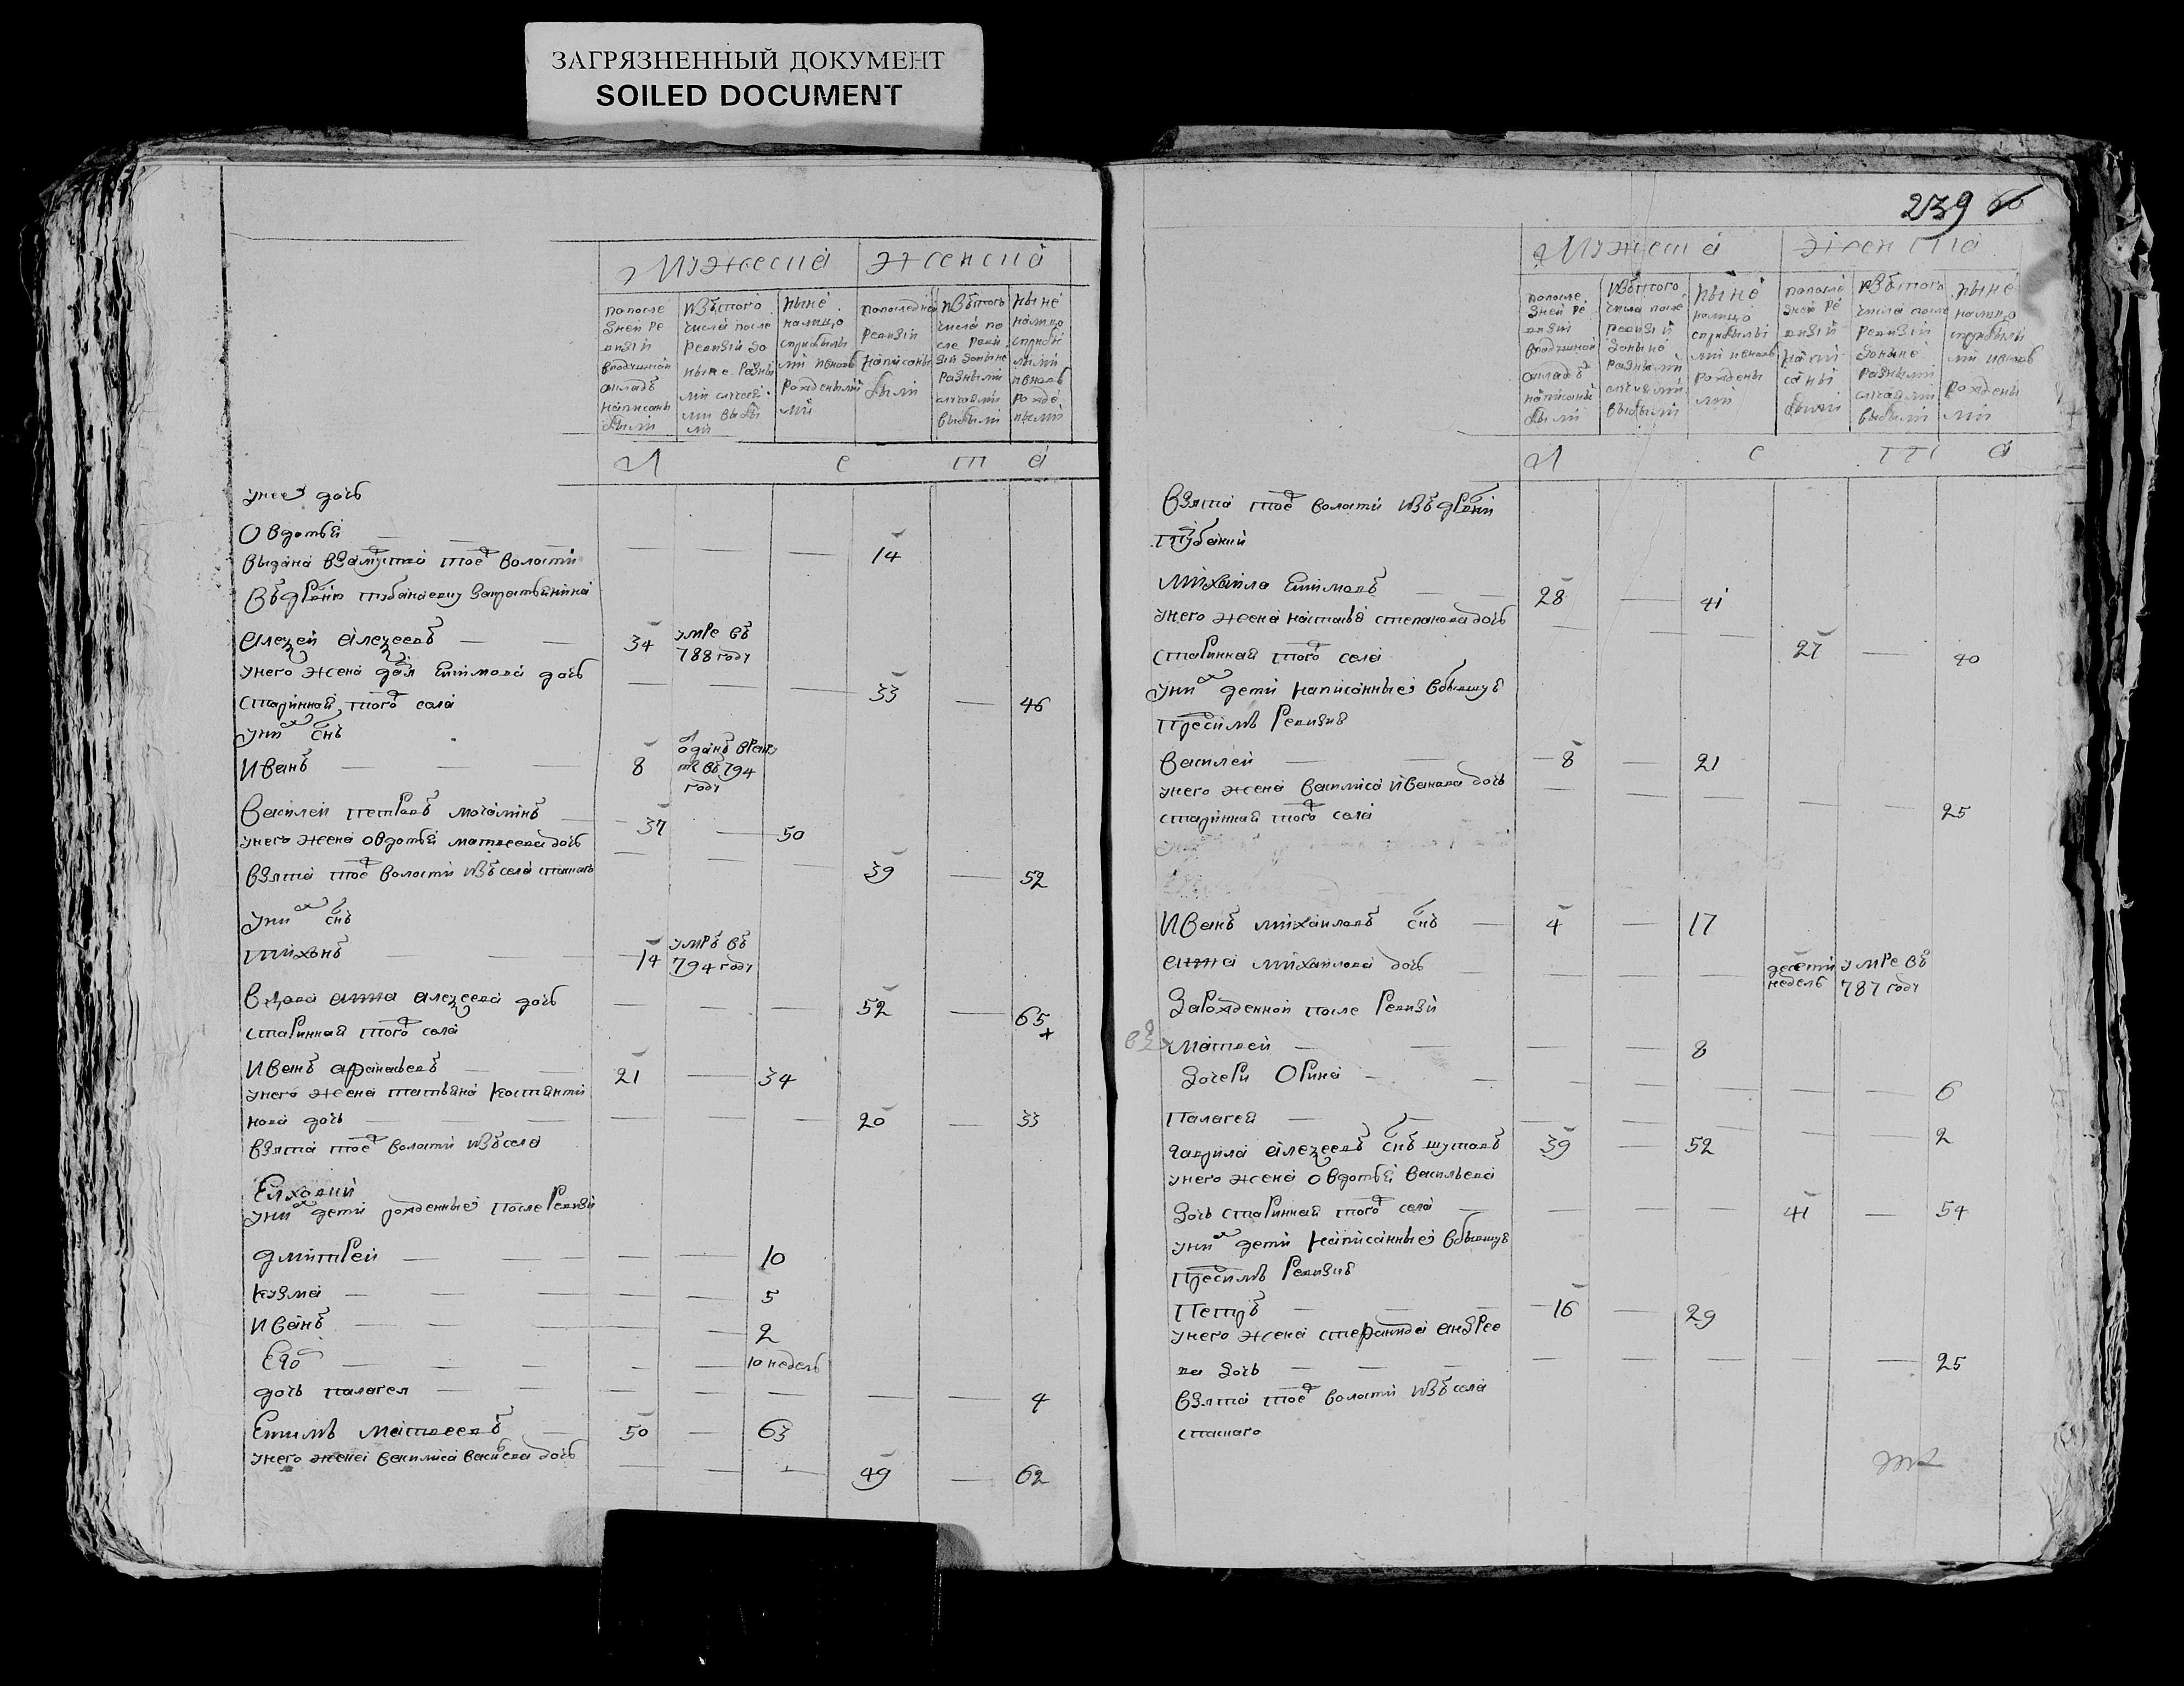 ЗАГРЯЗНЕННЫЙ ДОКУМЕНТ
SOILED DOCUMENT
Мужеска Женска
попосле днеи ревизии вподушной окладъ написаны были
изътого числа после ревизии до ныне разны ми случаями выбыли
ныне налицо сприбылы ми ивновь рожденными
попоследней ревизии написаны были
изътого числа после ревизии доныне разными случаями выбыли
ныне налицо сприбылыми ивновь рожденными
Л е т а
унее дочь
Овдотья — — — — — 14
выдана взамужство тоеж волости
въдревню тубанаевку закрестьянина
Алексей Алексеевъ — — 34 умре въ 788 году
унего жена Ефимова дочь — — — 33 — 46
старинная тогож села
уних снъ
Иванъ — — 8 отданъ врекруты въ 794 году
Василей Петровъ — 37 — 50
унего жена овдотья матвеева дочь — — — 39 — 52
взята тоеж волости изъ села
уних снъ
Тихонъ — — 14 умръ въ 794 году
Вдова анна алексеева дочь — — — 52 — 65
старинная тогож села
Иванъ афанасьевъ — — 21 — 34
унего жена татьяна костанти
нова дочь — — — — — 20 — 33
взята тоеж волости изъ села
Елховки
уних дети рожденные после ревизи
Дмитрей — — — — 10
Кузма — — — — 5
Иванъ — — — — 2
— — — — 10 недель
дочь палагея — — — — — — 4
Ефимъ Матвеевъ — 50 — 63
унего жена василиса васильева дочь — — — 49 — 62
239
Мужеска Женска
попосле днеи ревизии вподушной окладъ написаны были
изътого числа после ревизии доныне разными случаями выбыли
ныне налицо сприбылы ми ивновь рожденными
попосле дней ревизии написаны были
изътого числа после ревизии доныне разными случаями выбыли
ныне налицо сприбылы ми ивновь рожденными
Л е т а
взята тоеж волости изъ древни
Михайло Ефимовъ — — 28 — 41
унего жена настасья степанова дочь — — — 27 — 40
старинная тогож села
уних дети написанные вбывшую
предсимъ ревизию
Василей — — 8 — 21
унего жена василиса Иванова дочь — — — — — 25
старинная тогож села
Иванъ михайловъ снъ — 4 — 17
анна михайлова дочь — — — десети недель умре въ 787 году
рожденной после ревизи
Матвей — — — — 8
дочери Орина — — — — — — 6
Палагея — — — — — 2
гаврила алексеевъ снъ шутовъ 39 — 52
унего жена овдотья васильева
дочь старинная тогож села — — — — 41 — 54
уних дети написанные вбывшую
предсимъ ревизию
Петръ — — — 16 — 29
унего жена степанида андрее
ва дочь — — — — — — — — 25
взята тоеж волости изъ села